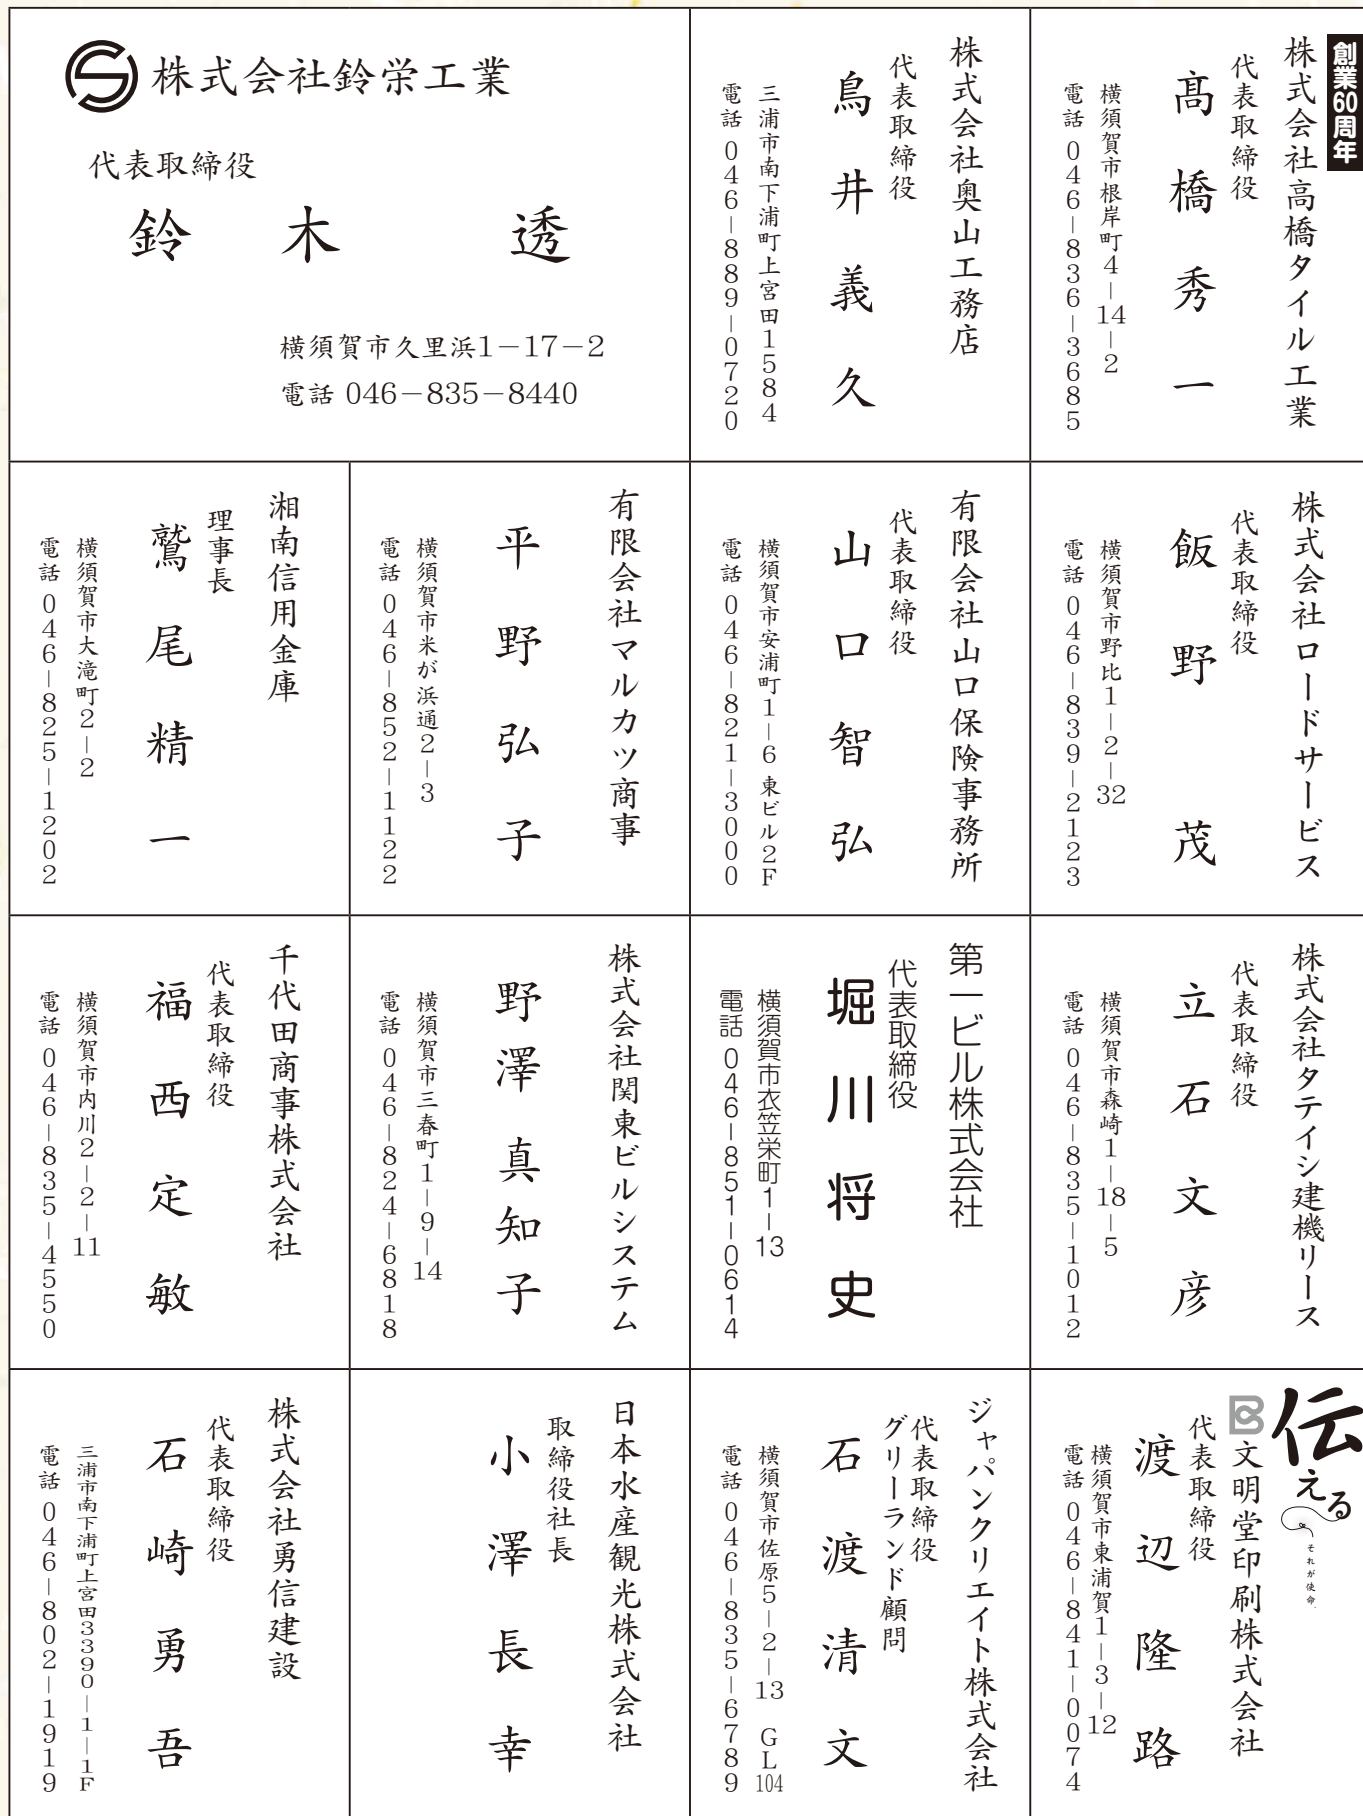 創業60周年
株式会社高橋タイル工業
代表取締役
髙橋秀一
横須賀市根岸町4－14－2
電話 046－836－3685
株式会社奥山工務店
代表取締役
鳥井義久
三浦市南下浦町上宮田1584
電話 046－889－0720
株式会社鈴栄工業
代表取締役
鈴木 透
横須賀市久里浜1－17－2
電話 046－835－8440
株式会社ロードサービス
代表取締役
飯野 茂
横須賀市野比1－2－32
電話 046－839－2123
有限会社山口保険事務所
代表取締役
山口智弘
横須賀市安浦町1－6 東ビル2F
電話 046－821－3000
有限会社マルカツ商事
平野弘子
横須賀市米が浜通2－3
電話 046－852－1122
湘南信用金庫
理事長
鷲尾精一
横須賀市大滝町2－2
電話 046－825－1202
株式会社タテイシ建機リース
代表取締役
立石文彦
横須賀市森崎1－18－5
電話 046－835－1012
第一ビル株式会社
代表取締役
堀川将史
横須賀市衣笠栄町1－13
電話 046－851－0614
株式会社関東ビルシステム
野澤真知子
横須賀市三春町1－9－14
電話 046－824－6818
千代田商事株式会社
代表取締役
福西定敏
横須賀市内川2－2－11
電話 046－835－4550
伝える
それが使命。
文明堂印刷株式会社
代表取締役
渡辺隆路
横須賀市東浦賀1－3－12
電話 046－841－0074
ジャパンクリエイト株式会社
代表取締役
グリーランド顧問
石渡清文
横須賀市佐原5－2－13 GL104
電話 046－835－6789
日本水産観光株式会社
取締役社長
小澤長幸
株式会社勇信建設
代表取締役
石崎勇吾
三浦市南下浦町上宮田3390－1－1F
電話 046－802－1919